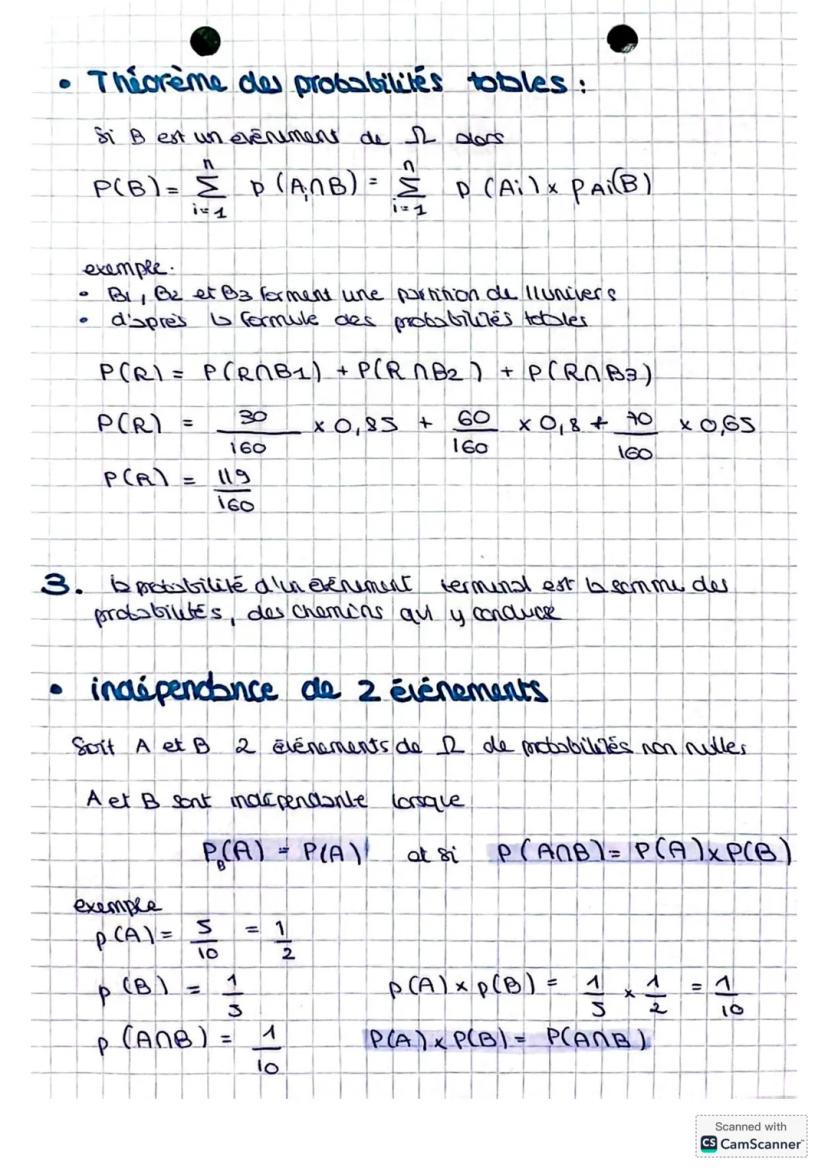 • Théorème des probabilités totales :
Si B est un evènement de Ω alors
P(B) = n Σ i=1 p(Ai∩B) = n Σ i=1 p(Ai) x PAi(B)
exemple.
• B1, B2 et B3 forment une partition de l'univers
• d'après la formule des probabilités totales
P(R) = P(R∩B1) + P(R∩B2) + P(R∩B3)
P(R) = 30/160 x 0,85 + 60/160 x 0,8 + 70/160 x 0,65
P(R) = 119/160
3. la probabilité d'un evènement terminal est la somme des
probabilités, des chemins qui y conduce
• indépendance de 2 événements
Soit A et B 2 événements de Ω de probabilités non nulles
A et B sont indépendante lorsque
P_B(A) = P(A) et si P(A∩B) = P(A) x P(B)
exemple
p(A) = 5/10 = 1/2
p(B) = 1/5 p(A) x p(B) = 1/5 x 1/2 = 1/10
p(A∩B) = 1/10 P(A) x P(B) = P(A∩B)
Scanned with
CS CamScanner